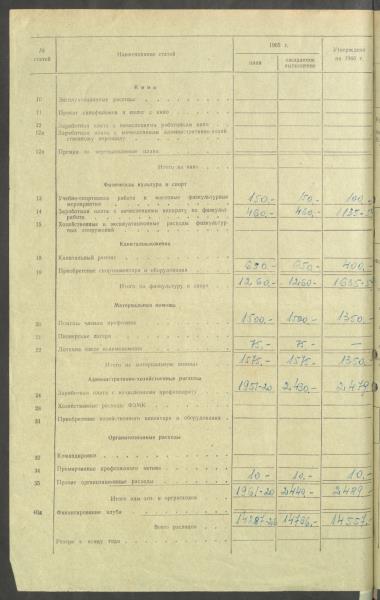 № статей
Наименование статей
1965 г.
план
ожидаемое выполнение
Утверждено на 1966 г.
Кино
10 Эксплуатационные расходы
11 Прокат кинофильмов и налог с кино
12 Заработная плата с начислениями работникам кино
12а Заработная плата с начислениями административно-хозяйственному персоналу
12в Премии за перевыполнение плана
Итого на кино
Физическая культура и спорт
13 Учебно-спортивная работа и массовые физкультурные мероприятия 150,- 150,- 100,-
14 Заработная плата с начислениями аппарату по физкультработе 460,- 460,-
15 Хозяйственные и эксплуатационные расходы физкультурных сооружений
Капиталовложения
18 Капитальный ремонт
19 Приобретение спортинвентаря и оборудования 650,- 650,- 400,-
Итого по физкультуре и спорту 1260,- 1260,-
Материальная помощь
20 Пособия членам профсоюза 1500,- 1500,- 1350,-
21 Пионерские лагеря
22 75,- 75,- —
Итого по материальной помощи 1575,- 1575,- 1350,-
Административно-хозяйственные расходы
24 Заработная плата с начислениями профаппарату 1951-20 2430,- 2479
28 Хозяйственные расходы ФЗМК
31 Приобретение хозяйственного инвентаря и оборудования
Организационные расходы
32 Командировки
34 Премирование профсоюзного актива
35 Прочие организационные расходы 10,- 10,- 10,-
Итого адм.-хоз. и орграсходов 1961-20 2440,- 2489,-
40а Финансирование клуба
Всего расходов
Остаток к концу года